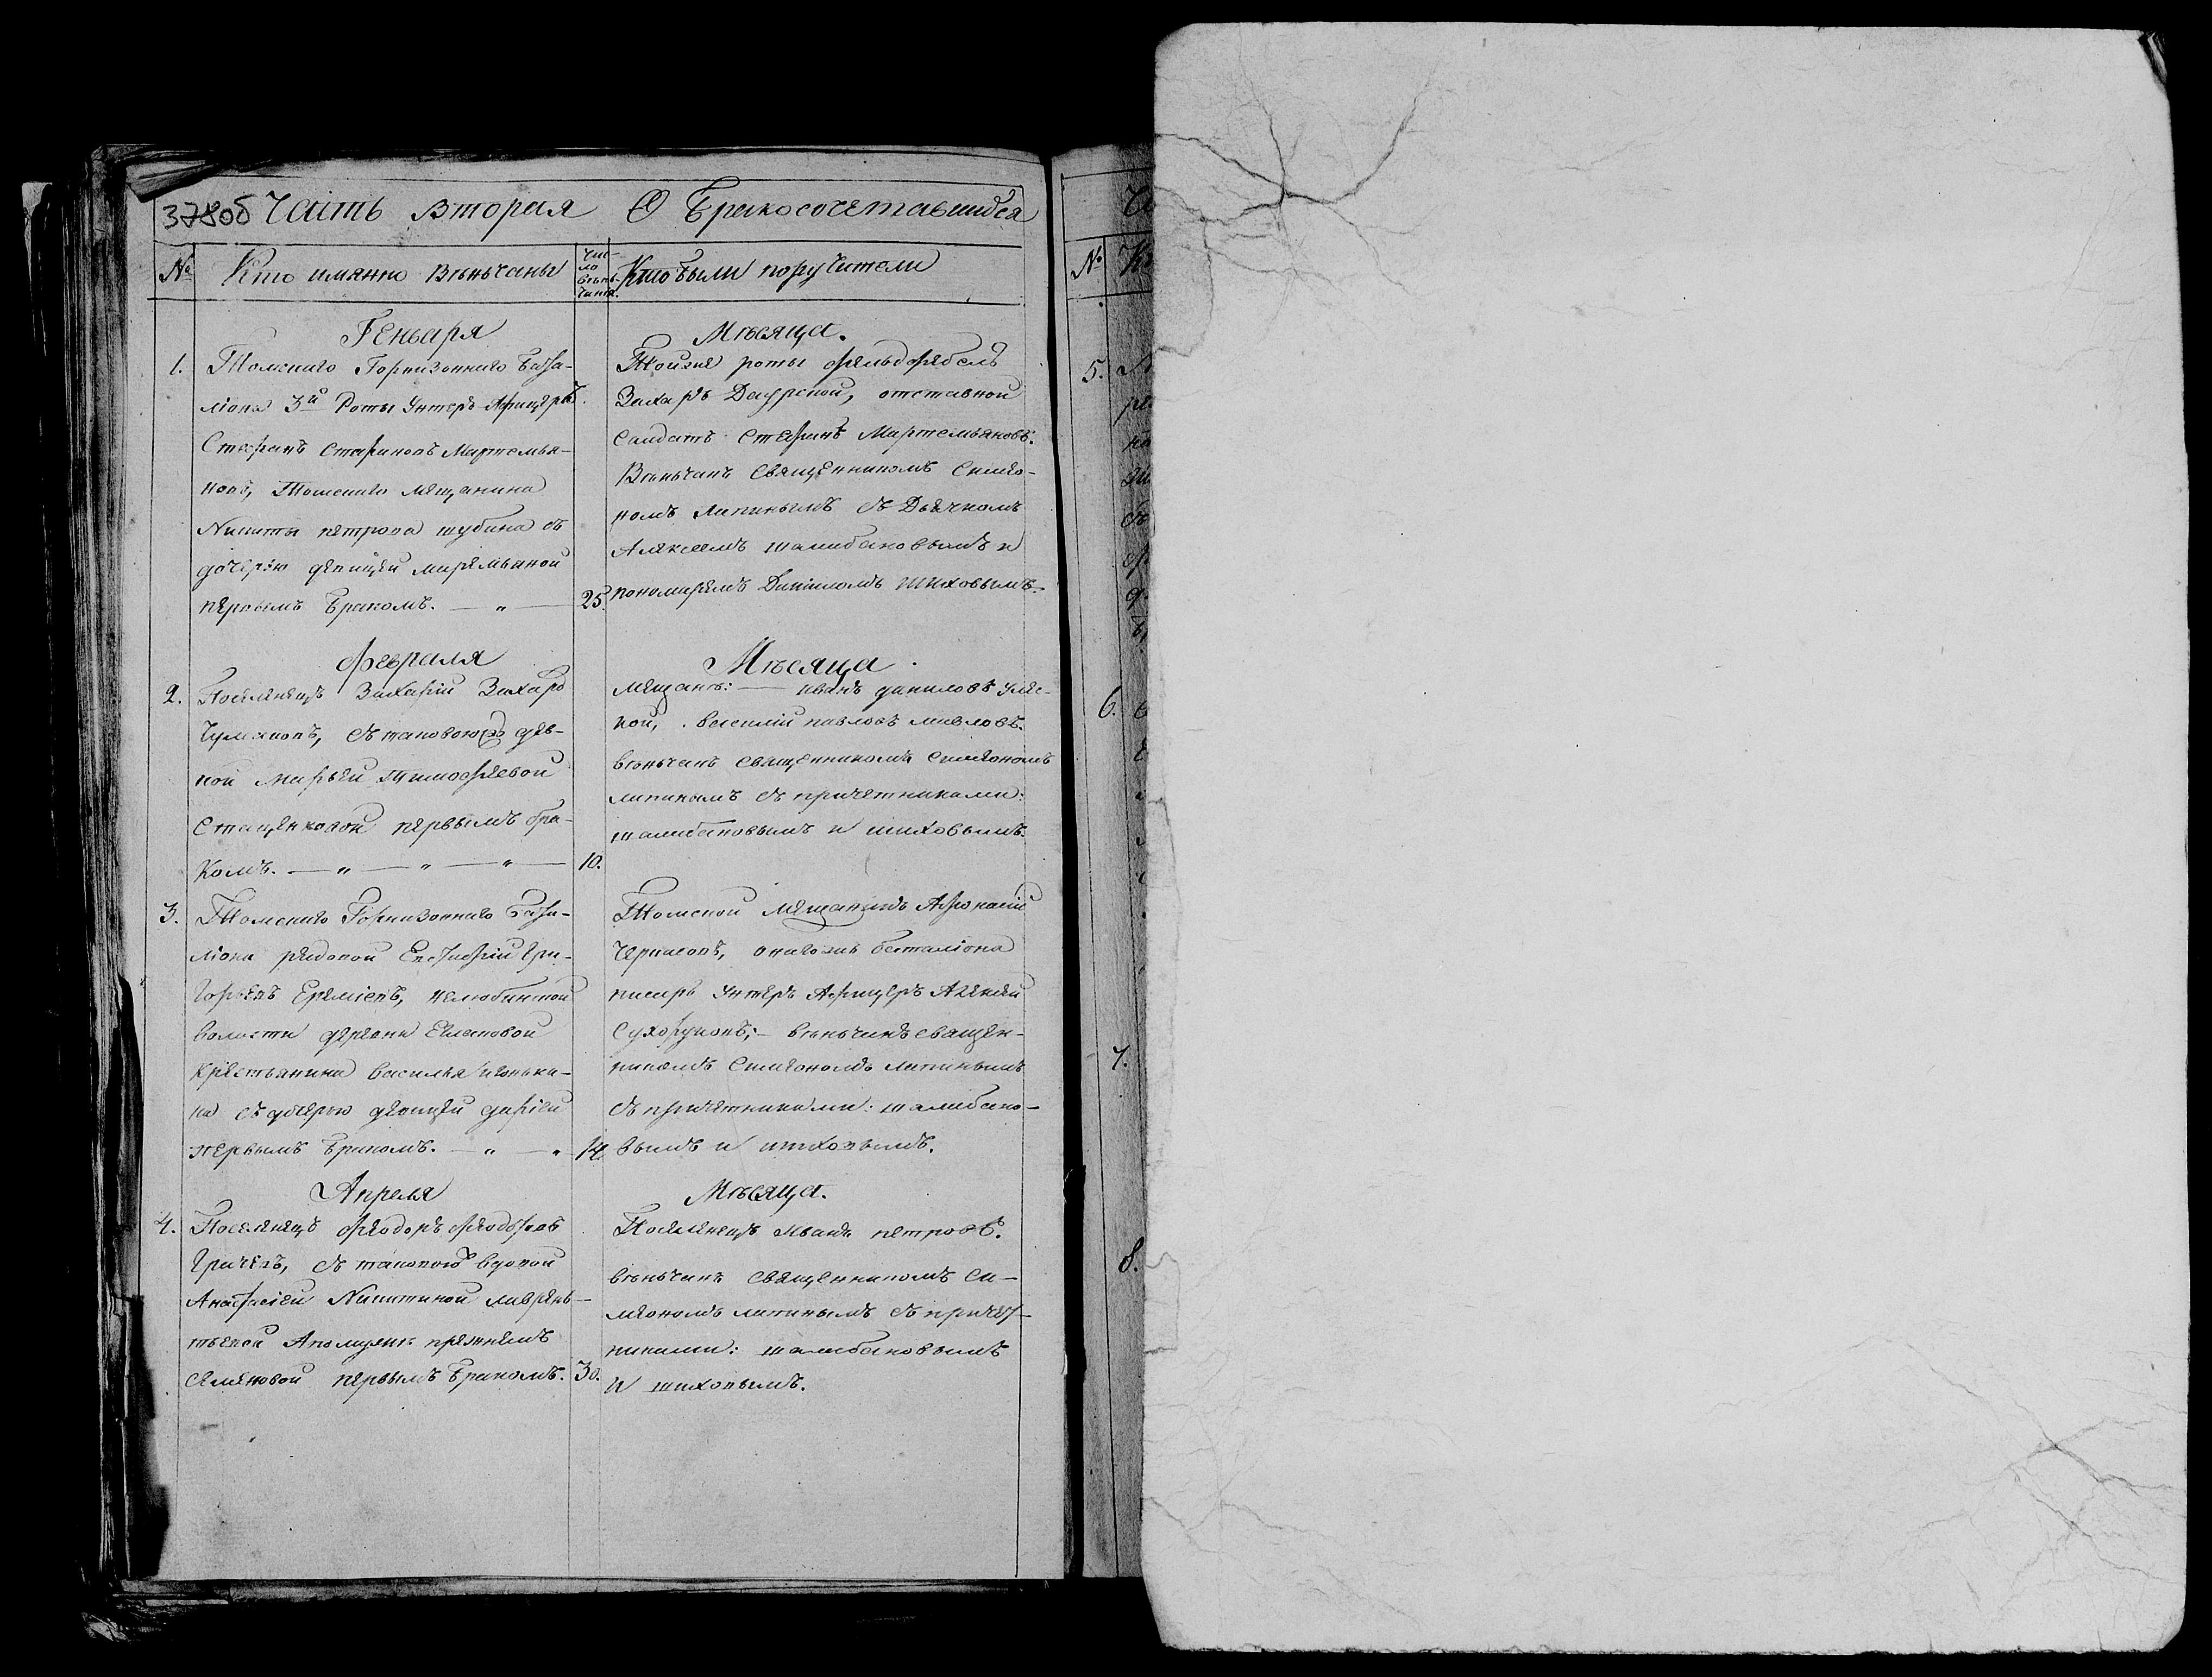 378об Часть вторая О Бракосочетавшихся
№ Кто имянно венчаны
Чис-
ло
венъ-
чания.
Кто были поручители
Генваря
1. Томскаго Гарнизоннаго Бата-
лiона 3й Роты Унтеръ Афицеръ
Стефанъ Стафиновъ Мартемья-
новъ, Томскаго мещанина
Никиты петрова шубина съ
дочерью девицей
первымъ Бракомъ. — „ — 25.
Месяца.
Тойже роты фельдфебель
Захаръ Даурской, отставной
Салдатъ Стефанъ Мартемьяновъ.
Венчанъ Священникомъ Симео-
номъ Лапинымъ съ Дьячкомъ
Алексеемъ шалабановымъ и
пономаремъ Данiиломъ Шиховымъ.
Февраля
2. Поселенецъ Захарiй Захаро
съ таковою дев-
кой марьей Тимофеевой
Стаценковой первымъ бра-
комъ. — „ — „ — „ — 10.
Месяца
Мещане: — иванъ даниловъ
кой, василiй павловъ
венчанъ священникомъ симеономъ
лапинымъ съ причетниками:
шалабановымъ и шиховымъ.
3. Томскаго Гарнизоннаго Бата-
лiона рядовой Евстафiй Гри-
горьевъ Еремiевъ, нелюбинской
волости деревни Еглановой
крестьянина василья
на съ дочерью девицей дарiей
первымъ Бракомъ. — „ — „ 14.
Томской Мещанинъ Афонасiй
Черкасовъ, баталiона
писарь Унтеръ Афицеръ Алексей
Сухоруковъ; — венчанъ священ-
никомъ Симеономъ лапинымъ
съ причетниками: шалабано-
вымъ и шиховымъ.
Апреля
4. Поселенецъ Феодоръ Феодоровъ
Грачевъ, съ таковою вдовой
Анастасiей Никитиной лаврень-
тьевой Апомужъ прежнемъ
Семеновой первымъ Бракомъ. 30.
Месяца.
Поселенецъ Иванъ петровъ.
венчанъ Священникомъ Си-
меономъ лапинымъ съ причет-
никами: шалабановымъ
и шиховымъ.
№
5.
6.
7.
8.